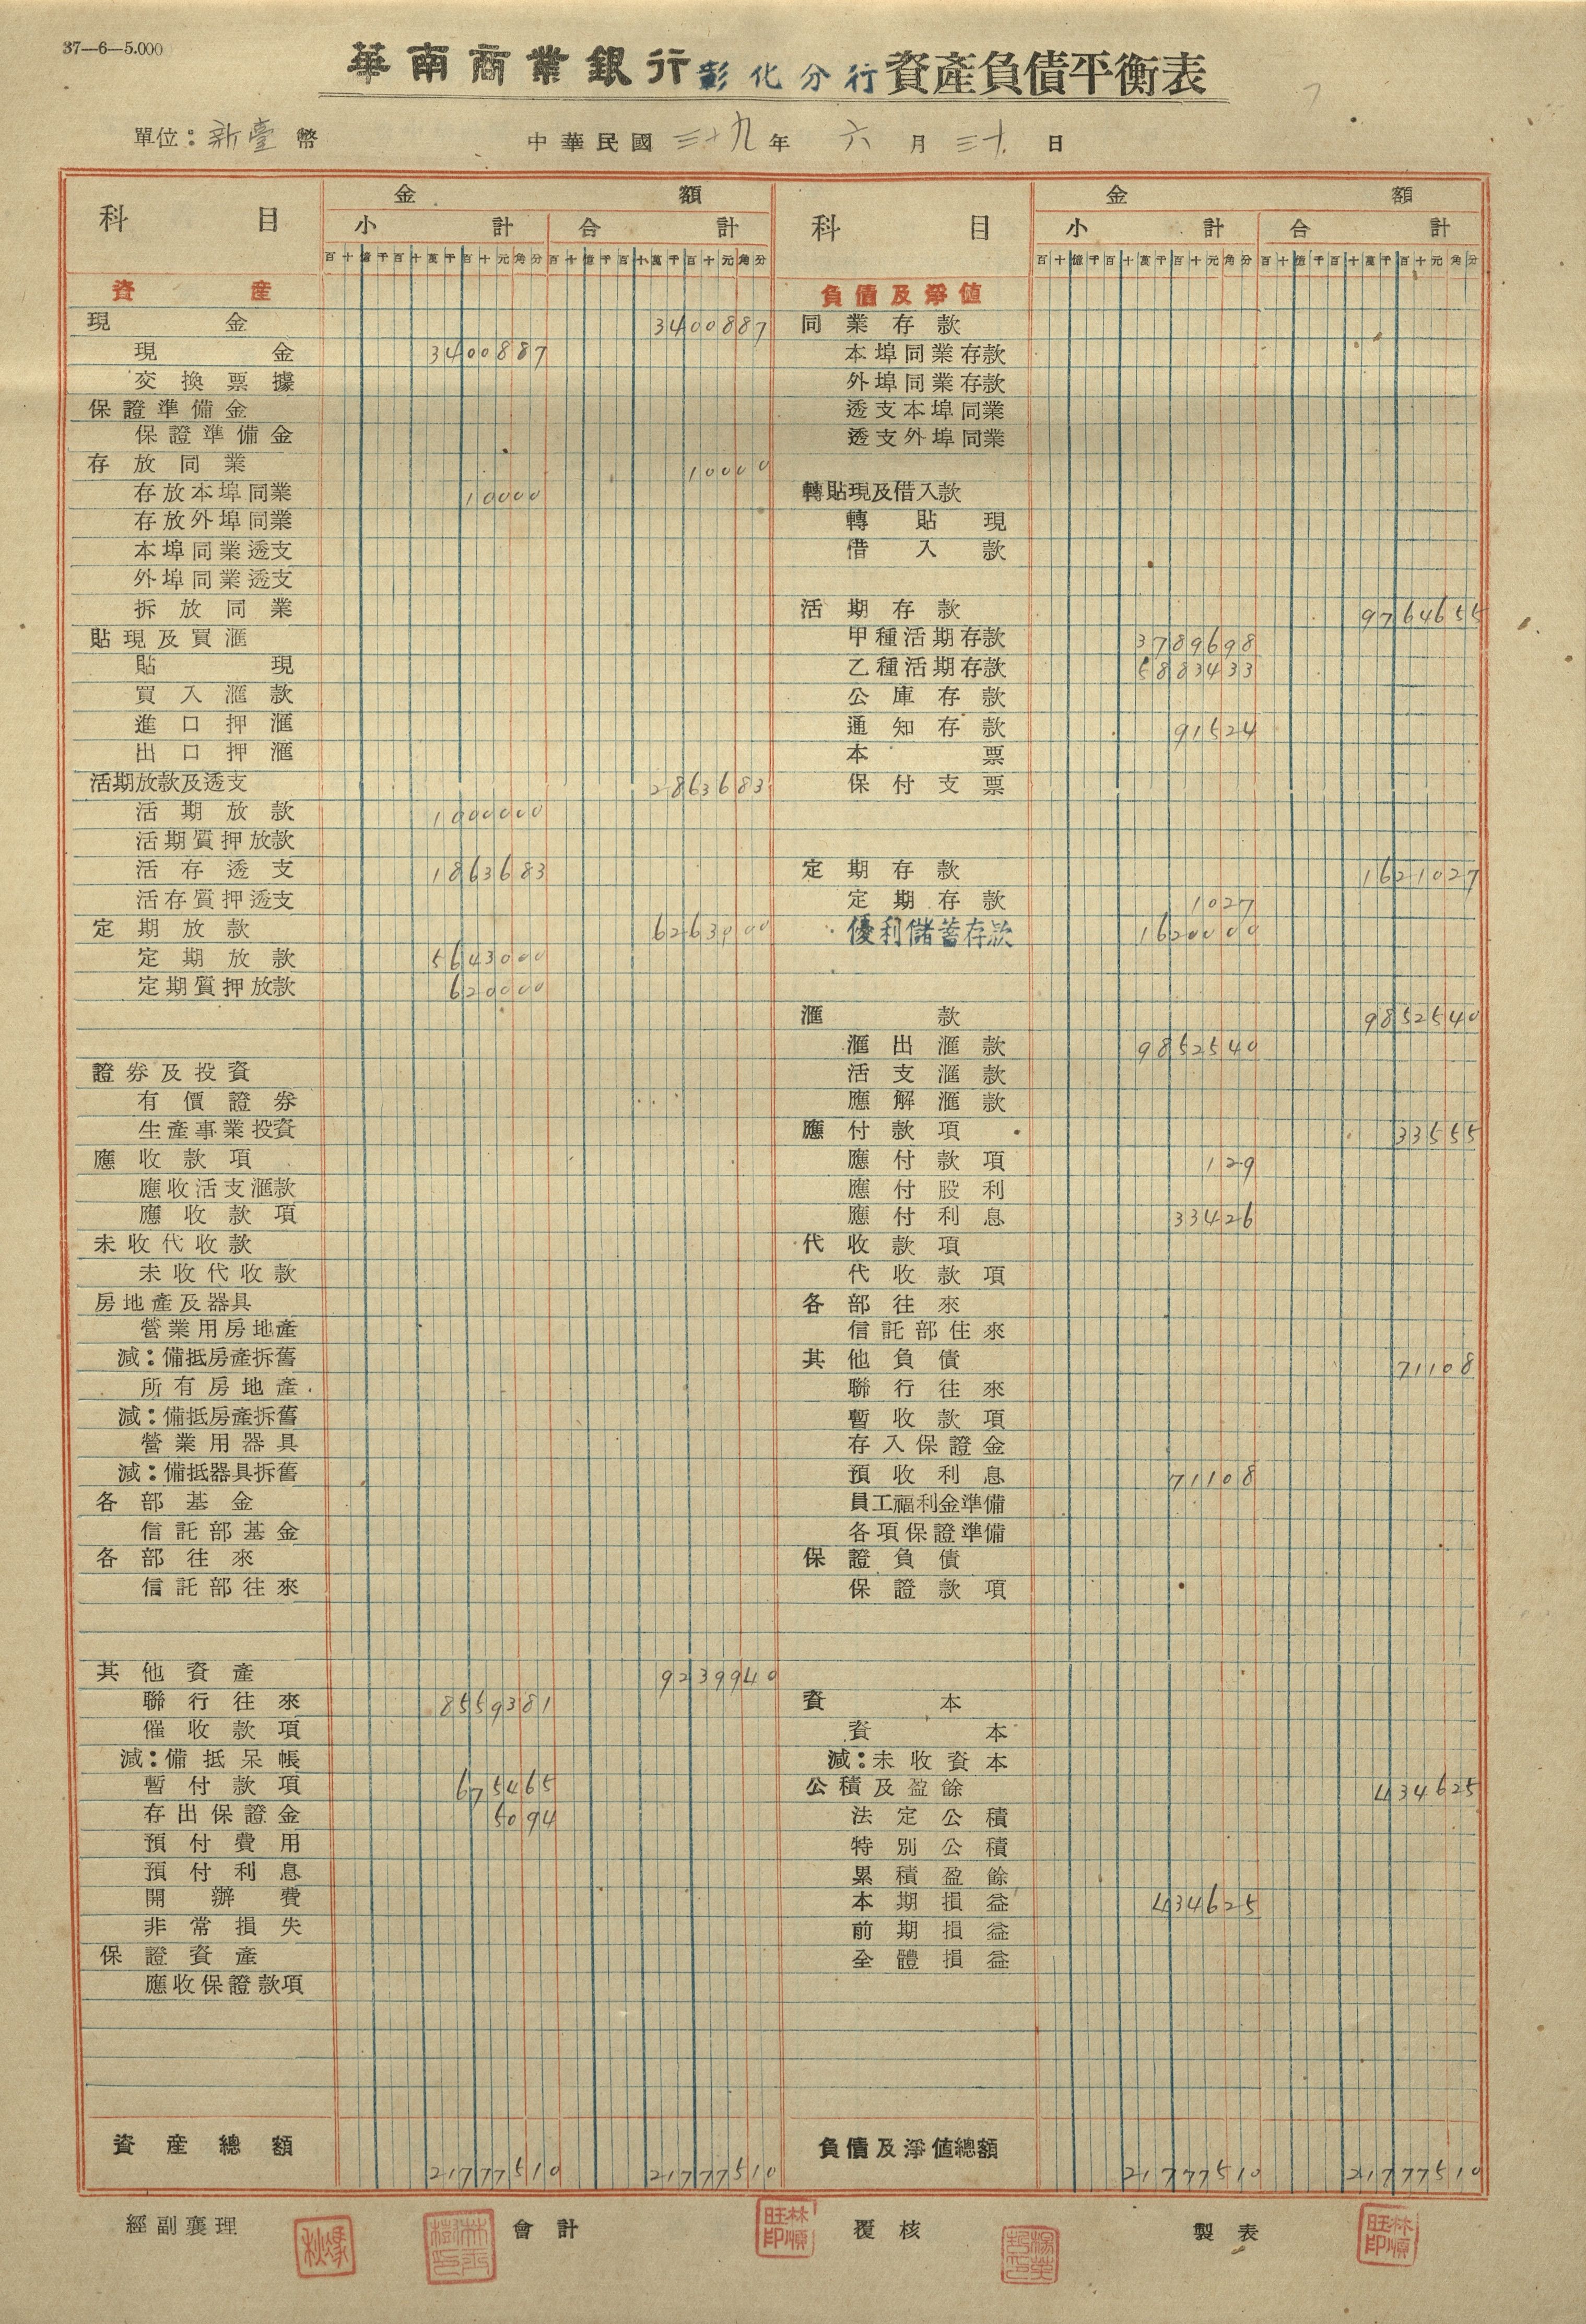 37—6—5.000
華南商業銀行彰化分行資產負債平衡表
單位：新臺幣 中華民國三十九年六月三十日
科目 金額 科目 金額
小計 合計 小計 合計
百十億千百十萬千百十元角分 百十億千百十萬千百十元角分 百十億千百十萬千百十元角分 百十億千百十萬千百十元角分
資產
現金 3400887
現金 3400887
交換票據
保證準備金
保證準備金
存放同業 10000
存放本埠同業 10000
存放外埠同業
本埠同業透支
外埠同業透支
拆放同業
貼現及買滙
貼現
買入滙款
進口押滙
出口押滙
活期放款及透支 2863683
活期放款 1000000
活期質押放款
活存透支 1863683
活存質押透支
定期放款 6263000
定期放款 5643000
定期質押放款 620000
證券及投資
有價證券
生產事業投資
應收款項
應收活支滙款
應收款項
未收代收款
未收代收款
房地產及器具
營業用房地產
減：備抵房產拆舊
所有房地產
減：備抵房產拆舊
營業用器具
減：備抵器具拆舊
各部基金
信託部基金
各部往來
信託部往來
其他資產 9239940
聯行往來 8559381
催收款項
減：備抵呆帳
暫付款項 675465
存出保證金 5094
預付費用
預付利息
開辦費
非常損失
保證資產
應收保證款項
資產總額 21777510 21777510
負債及淨值
同業存款
本埠同業存款
外埠同業存款
透支本埠同業
透支外埠同業
轉貼現及借入款
轉貼現
借入款
活期存款 9764655
甲種活期存款 3789698
乙種活期存款 5883433
公庫存款
通知存款 91524
本票
保付支票
定期存款 1621027
定期存款 1027
優利儲蓄存款 1620000
滙款 9852540
滙出滙款 9852540
活支滙款
應解滙款
應付款項 33555
應付款項 129
應付股利
應付利息 33426
代收款項
代收款項
各部往來
信託部往來
其他負債 71108
聯行往來
暫收款項
存入保證金
預收利息 71108
員工福利金準備
各項保證準備
保證負債
保證款項
資本
資本
減：未收資本
公積及盈餘 434625
法定公積
特別公積
累積盈餘
本期損益 434625
前期損益
全體損益
負債及淨值總額 21777510 21777510
經副襄理 會計 林順旺印 覆核 製表 林順旺印